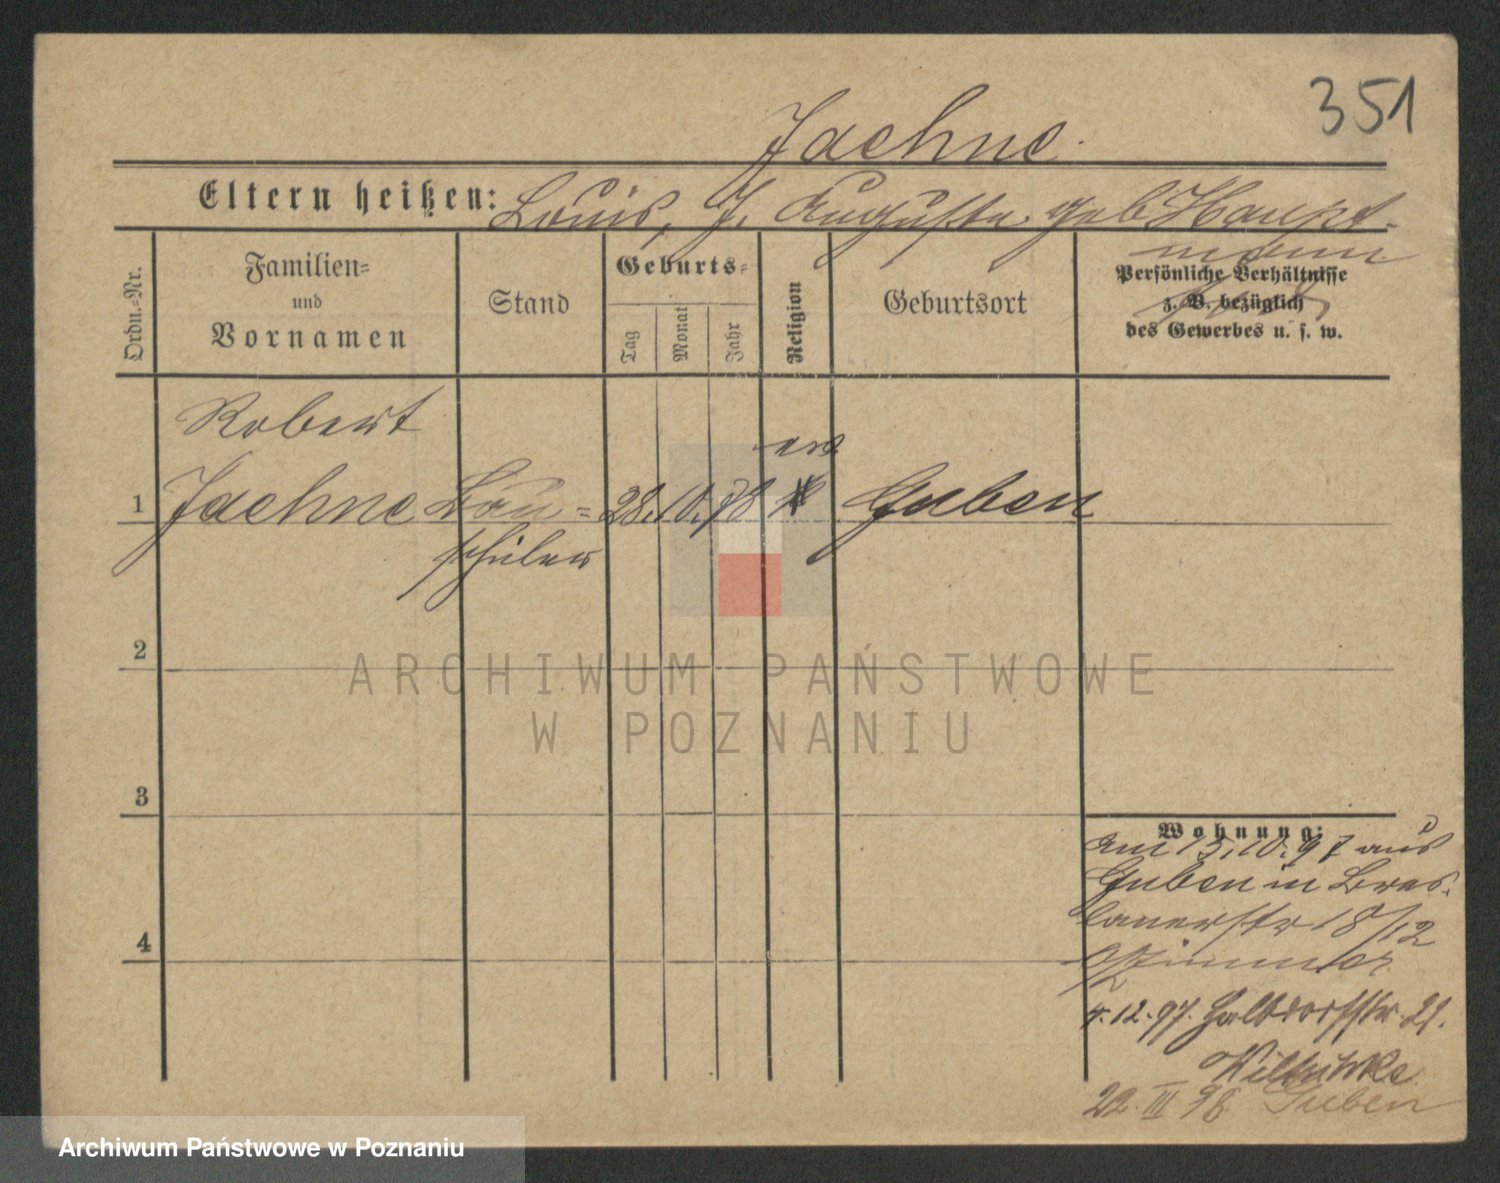 351
Jaehne.
Eltern heißen: Louis, J. Auguste geb. Haupt-
mann
Ordn.-Nr.
Familien-
und
Vornamen
Stand
Geburts-
Tag
Monat
Jahr
Religion
Geburtsort
Persönliche Verhältnisse
z. B. bezüglich
des Gewerbes u. s. w.
Robert
ev.
1 Jaehne Bau- 28. 10. 78 Guben
schüler
2
3
4
Wohnung:
am 15.10.97 aus
Guben in Bres-
lauerstr 18/12
4.12.97. Halbdorfstr. 21.
22. III 98 Guben
ARCHIWUM PAŃSTWOWE
W POZNANIU
Archiwum Państwowe w Poznaniu